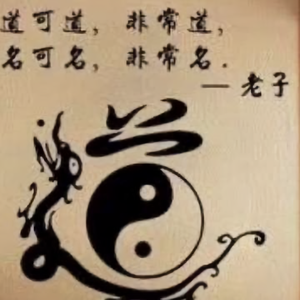 道可道，非常道，
名可名，非常名．
— 老子